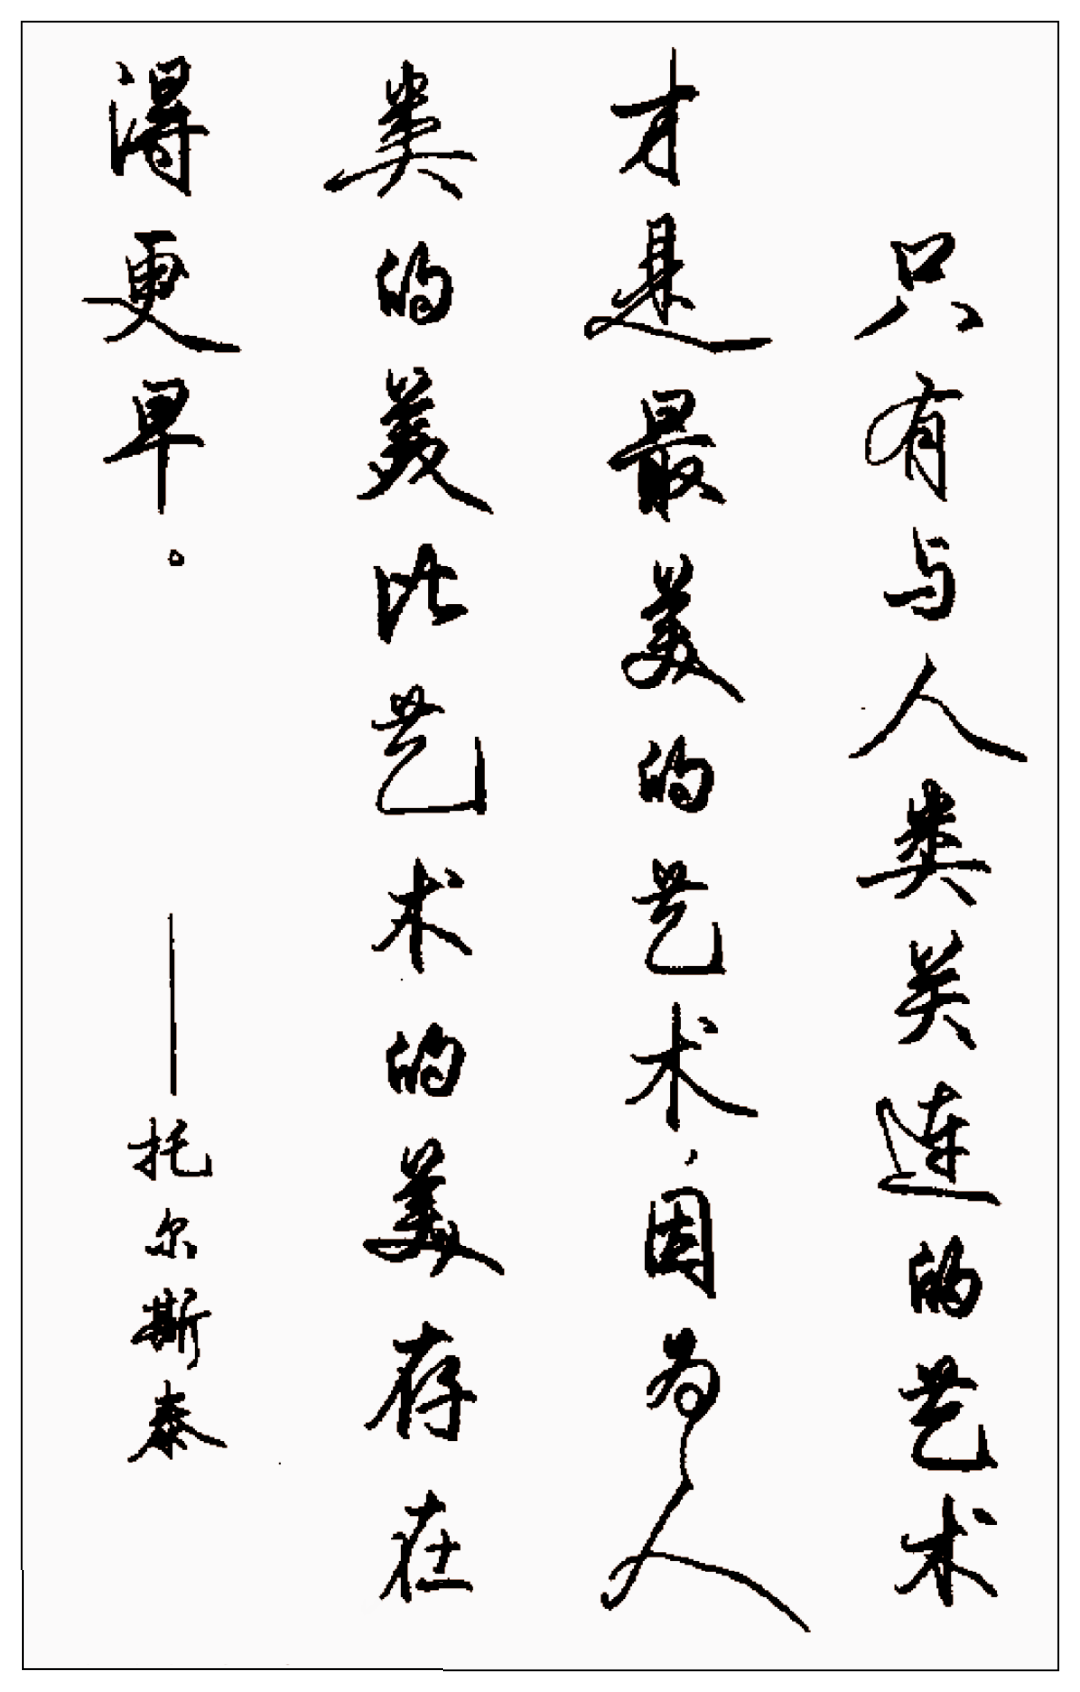 只有与人类关连的艺术
才是最美的艺术，因为人
类的美比艺术的美存在
得更早。
——托尔斯泰